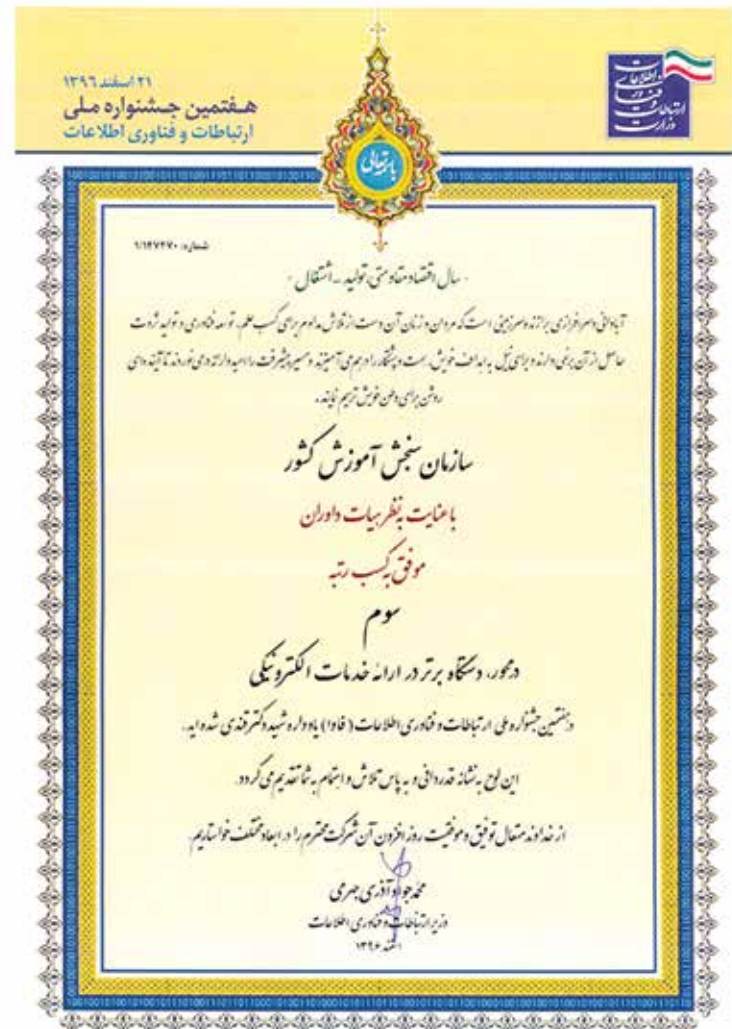 ۲۱ اسفند ۱۳۹۶
هفتمین جشنواره ملی
ارتباطات و فناوری اطلاعات
وزارت ارتباطات و فناوری اطلاعات
باسمه‌تعالی
شماره: ۱/۱۴۷۴۷۰
سال اقتصاد مقاومتی، تولید - اشتغال
آبادانی و سرافرازی برازنده سرزمینی است که مردان و زنان آن دست از تلاش مداوم برای کسب علم، توسعه فناوری و تولید ثروت
حاصل از آن برنمی‌دارند و برای نیل به اهداف خویش، همت و پشتکار را در هم می‌آمیزند و مسیر پیشرفت را امیدوارانه درمی‌نوردند تا آینده‌ای
روشن برای وطن خویش ترسیم نمایند.
سازمان سنجش آموزش کشور
با عنایت به نظر هیات داوران
موفق به کسب رتبه
سوم
در محور، دستگاه برتر در ارائه خدمات الکترونیکی
در هفتمین جشنواره ملی ارتباطات و فناوری اطلاعات (فاوا) یادواره شهید دکتر قندی شده اید.
این لوح به نشانه قدردانی و به پاس تلاش و اهتمام به شما تقدیم می گردد.
از خداوند متعال توفیق و موفقیت روز افزون آن شرکت محترم را در ابعاد مختلف خواستاریم.
محمدجواد آذری جهرمی
وزیر ارتباطات و فناوری اطلاعات
اسفند ۱۳۹۶